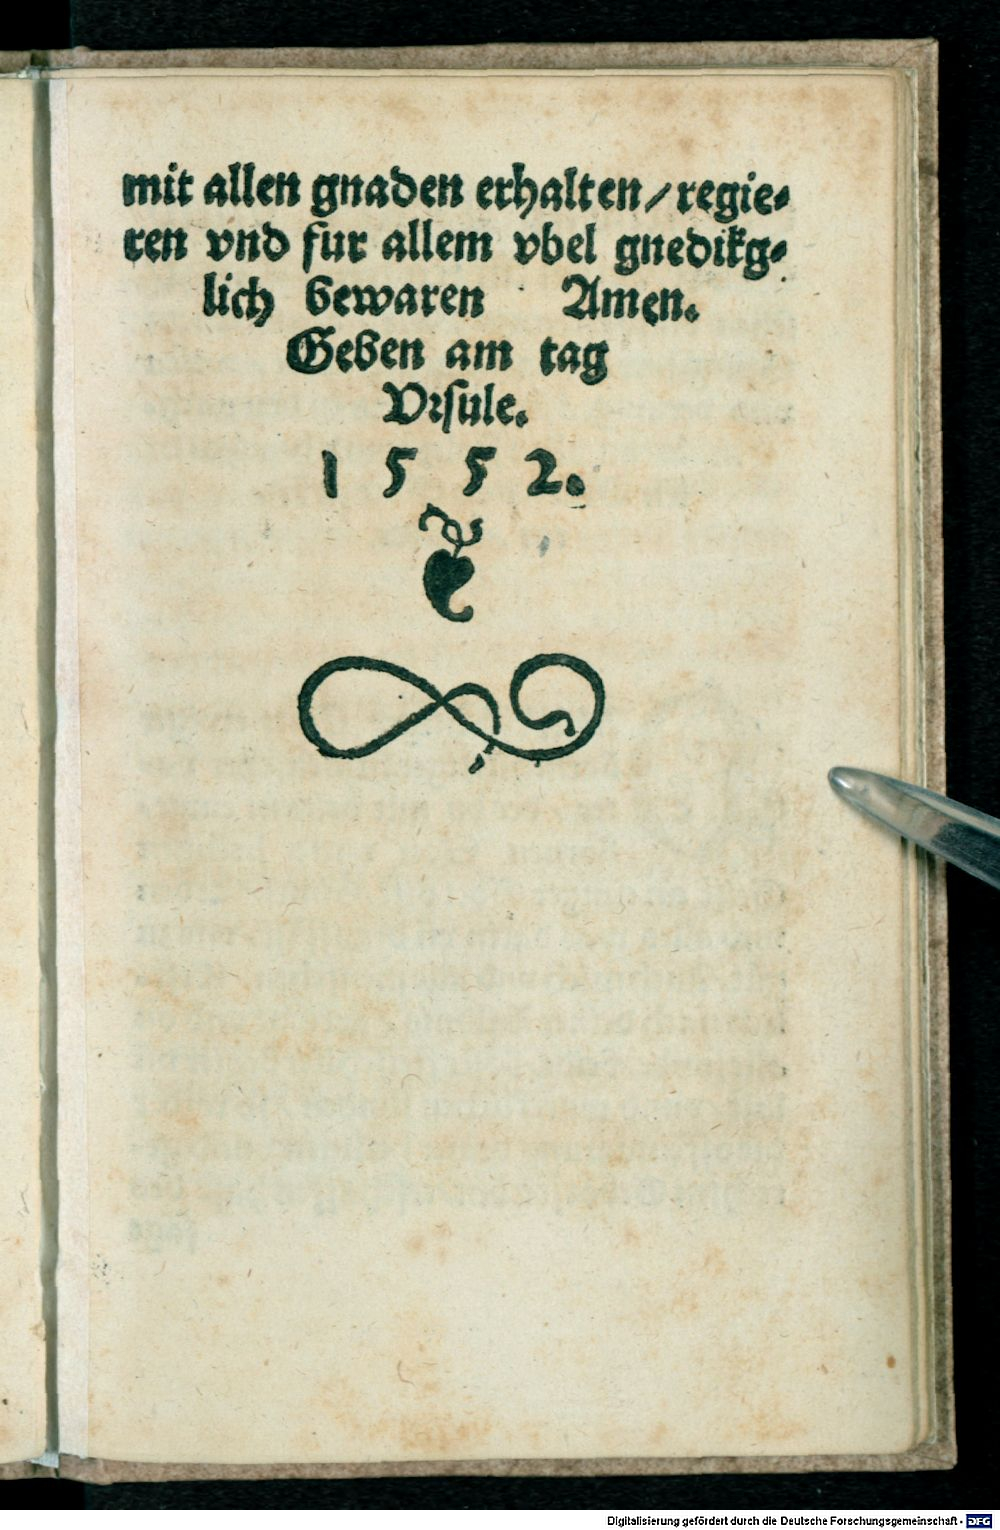 mit allen gnaden erhalten/regie⸗
ren vnd fur allem vbel gnedikg⸗
lich bewaren Amen.
Geben am tag
Vrsule.
1552.
Digitalisierung gefördert durch die Deutsche Forschungsgemeinschaft - DFG